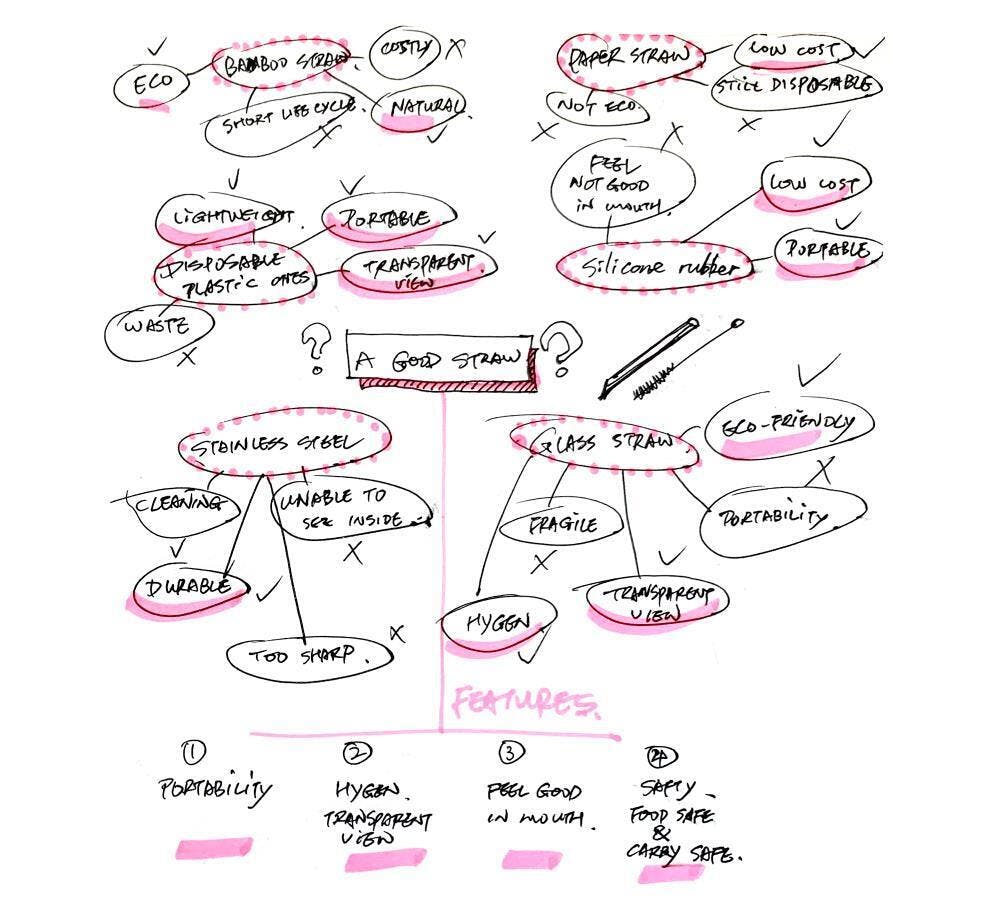 BAMBOO STRAW.
COSTLY
ECO
SHORT LIFE CYCLE.
NATURAL.
PAPER STRAW
LOW COST
STILL DISPOSABLE
NOT ECO
FEEL
NOT GOOD
IN MOUTH.
LOW COST
Silicone rubber
PORTABLE
LIGHTWEIGHT.
PORTABLE
DISPOSABLE
PLASTIC ONES
TRANSPARENT
VIEW
WASTE
? A GOOD STRAW ?
STAINLESS STEEL
CLEANING
UNABLE TO
SEE INSIDE
DURABLE
TOO SHARP.
GLASS STRAW
ECO-FRIENDLY
FRAGILE
PORTABILITY
HYGEN
TRANSPARENT
VIEW
FEATURES.
①
PORTABILITY
②
HYGEN.
TRANSPARENT
VIEW
③
FEEL GOOD
IN MOUTH.
④
SAFTY -
FOOD SAFE
&
CARRY SAFE.